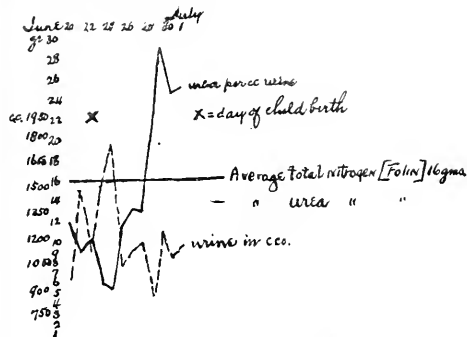 June 20 22 28 26 28 30 July 1
gs 30
28
26
24
cc. 1950 22
1800 20
1650 18
1500 16
14
1350 12
1200 10
9
1050 8
7
6
900 5
4
750 3
2
1
urea per cc urine
x = day of child birth
Average total nitrogen [Folin] 16 gms.
— " urea " "
urine in ccs.